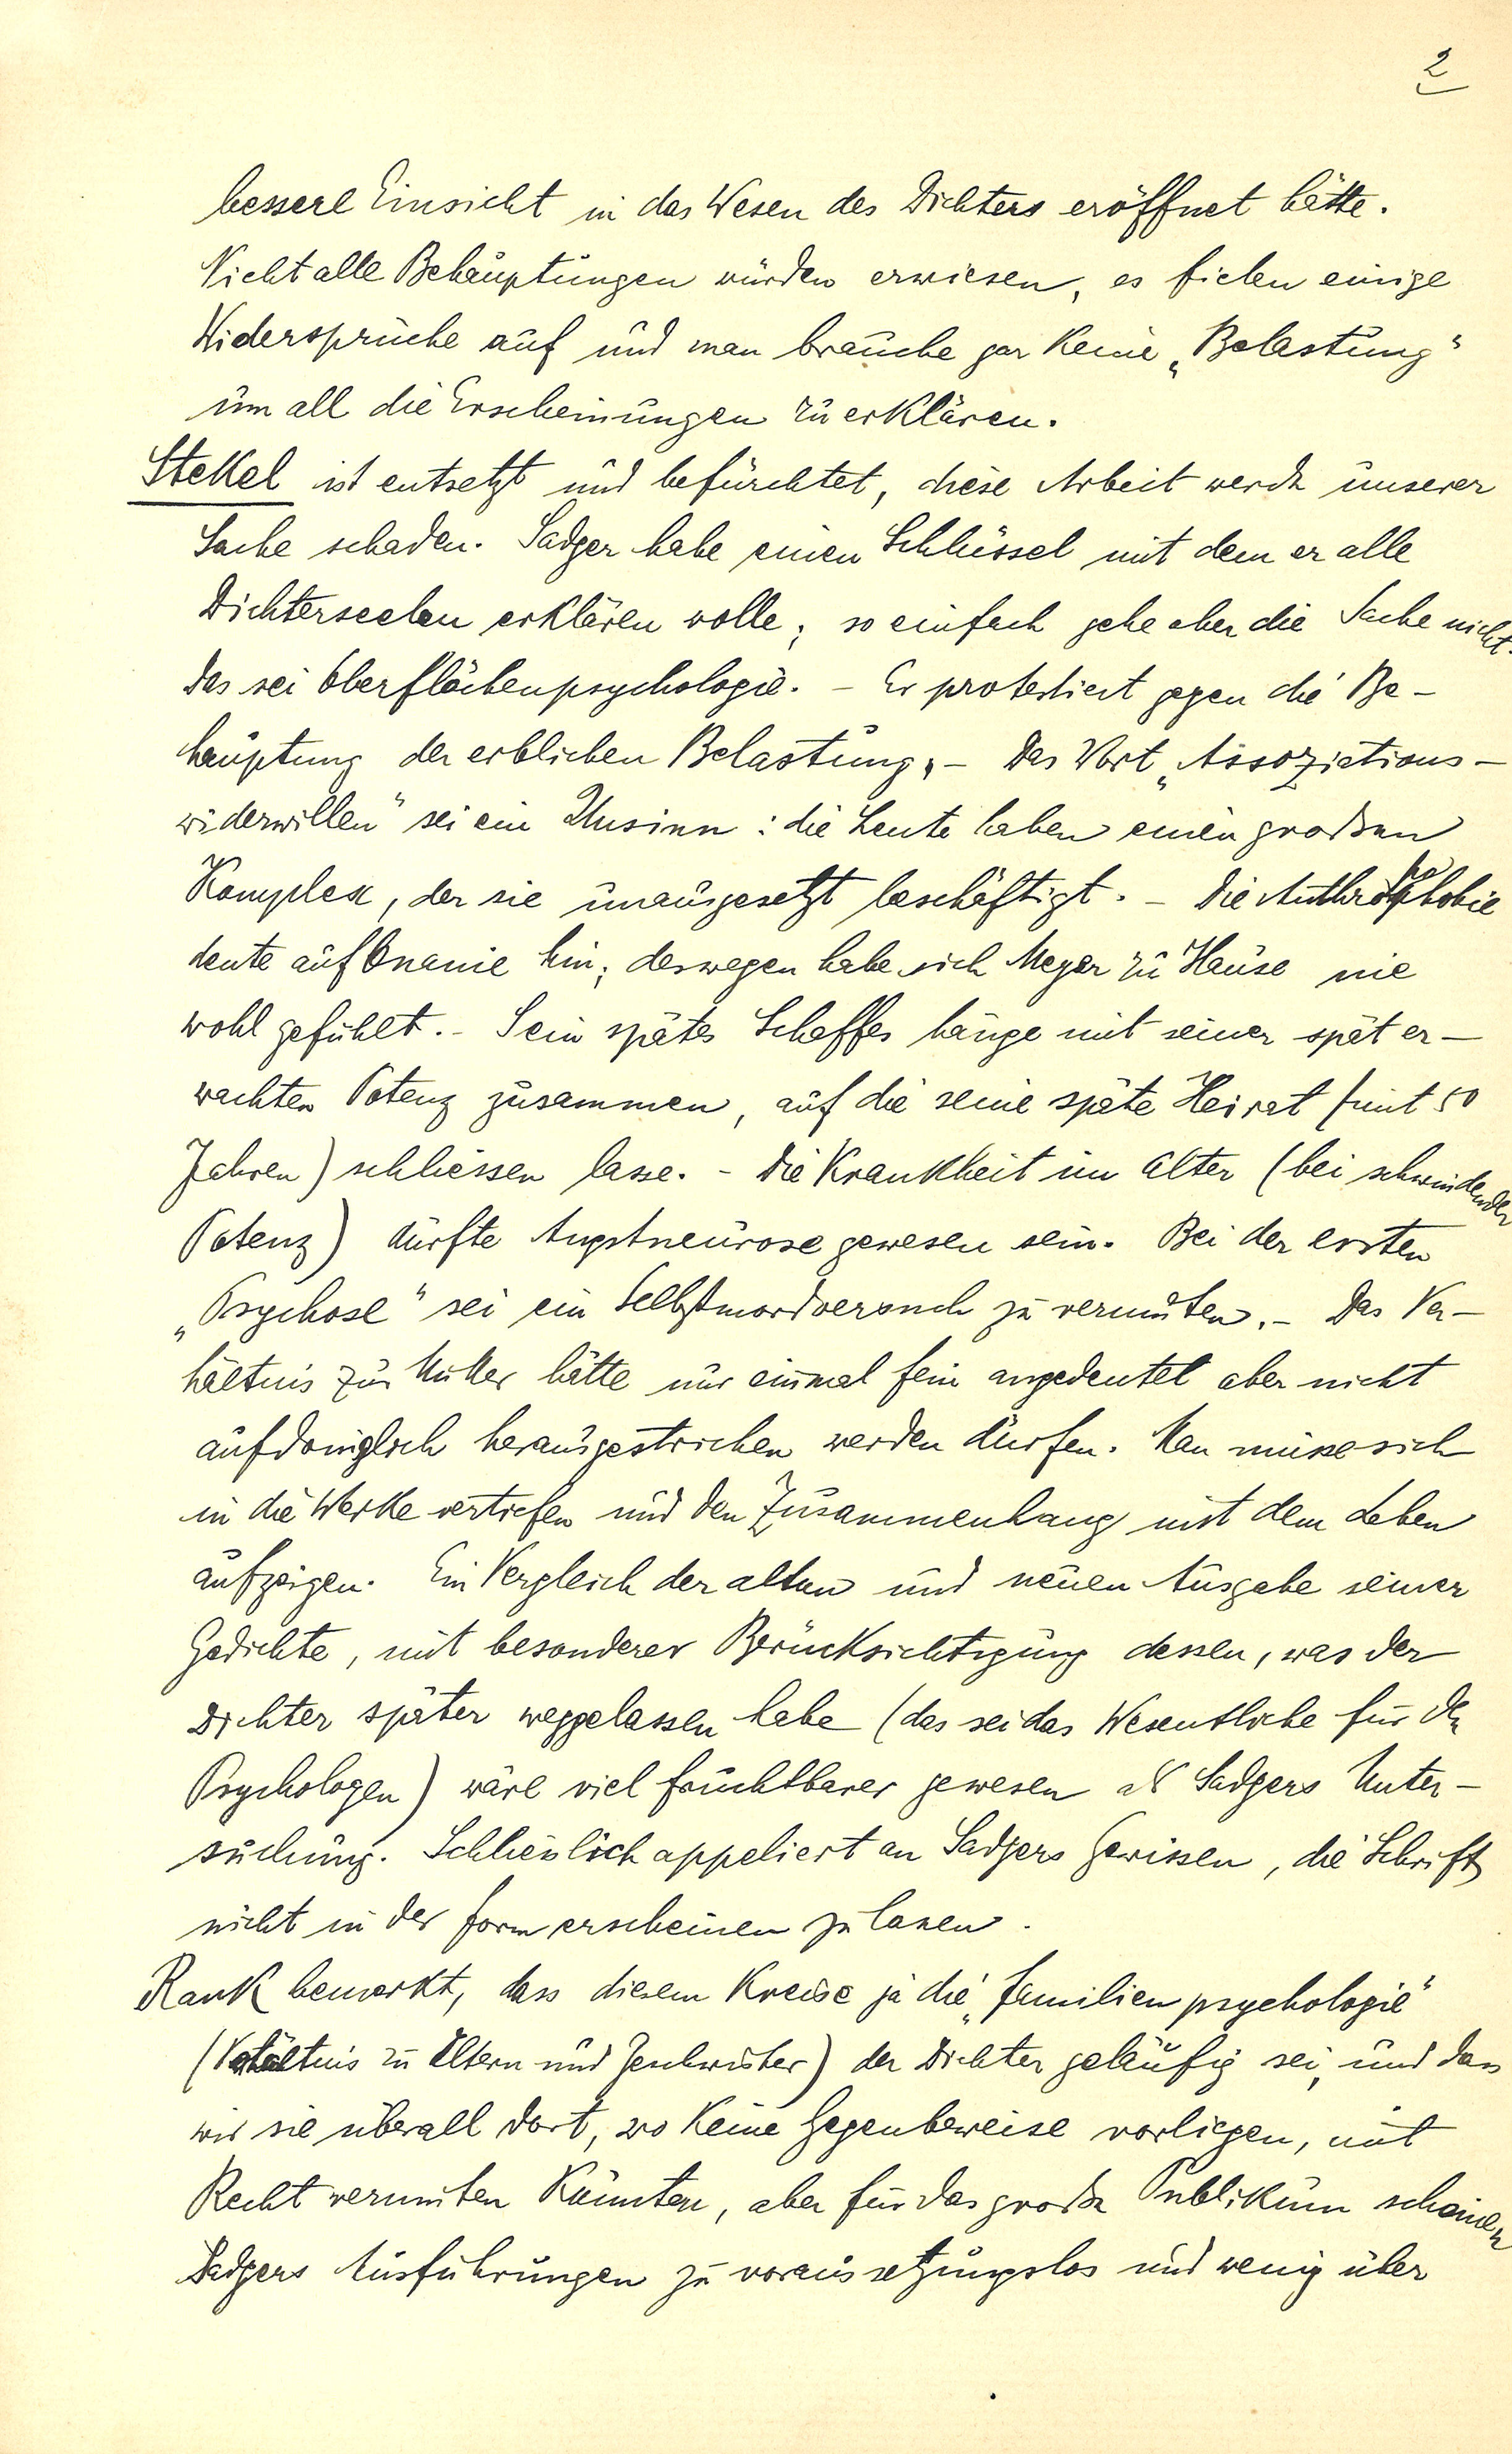 2
bessere Einsicht in das Wesen des Dichters eröffnet hätte.
Nicht alle Behauptungen würden erwiesen, es fielen einige
Widersprüche auf und man brauche gar keine „Belastung“
um all die Erscheinungen zu erklären.
Stekel ist entsetzt und befürchtet, diese Arbeit werde unserer
Sache schaden. Sadger habe einen Schlüssel mit dem er alle
Dichterseelen erklären wolle; so einfach gehe aber die Sache nicht.
das sei Oberflächenpsychologie. – Er protestiert gegen die Be-
hauptung der erblichen Belastung. – Das Wort „Assoziations-
widerwillen“ sei ein Unsinn: die Leute haben einen großen
Komplex, der sie unausgesetzt beschäftigt. – Die Anthropophobie
deute auf Onanie hin; deswegen habe sich Meyer zu Hause nie
wohl gefühlt. – Sein spätes Schaffes hänge mit seiner spät er-
wachten Potenz zusammen, auf die seine späte Heirat (mit 50
Jahren) schliessen lasse. – Die Krankheit im Alter (bei schwindender
Potenz) dürfte Angstneurose gewesen sein. Bei der ersten
„Psychose“ sei ein Selbstmordversuch zu vermuten. – Das Ver-
hältnis zur Mutter hätte nur einmal fein angedeutet aber nicht
aufdringlich herausgestrichen werden dürfen. Man müsse sich
in die Werke vertiefen und den Zusammenhang mit dem Leben
aufzeigen. Ein Vergleich der alten und neuen Ausgabe seiner
Gedichte, mit besonderer Berücksichtigung dessen, was der
Dichter später weggelassen habe (das sei das Wesentliche für den
Psychologen) wäre viel fruchtbarer gewesen als Sadgers Unter-
suchung. Schließlich appeliert an Sadgers Gewissen, die Schrift
nicht in der Form erscheinen zu lassen.
Rank bemerkt, dass diesem Kreise ja die „Familienpsychologie“
(Verhältnis zu Eltern und Geschwister) der Dichter geläufig sei, und dass
wir sie überall dort, wo keine Gegenbeweise vorliegen, mit
Recht vermuten könnten, aber für das große Publikum scheinen
Sadgers Ausführungen zu voraussetzungslos und wenig über